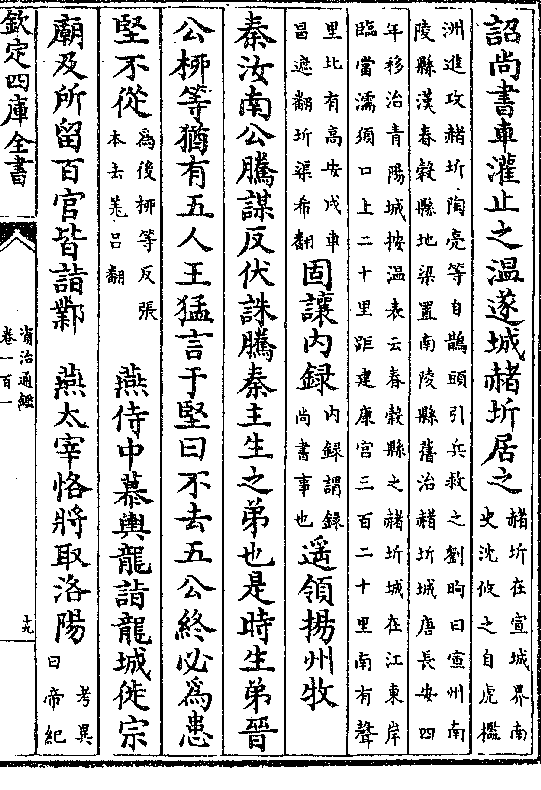 詔尚書車灌止之溫遂城赭圻居之赭圻在宣城界南史沈攸之自虎檻
洲進攻赭圻陶亮等自鵲頭引兵救之劉昫曰宣州南陵縣漢春穀縣地梁置南陵縣舊治赭圻城唐長安四
年移治青陽城按溫表云春穀縣之赭圻城在江東岸臨當濡須口上二十里距建康宮三百二十里南有聲
里比有高安戍車昌遮翻圻渠希翻固讓内録内録謂録尚書事也遥領揚州牧
秦汝南公騰謀反伏誅騰秦主生之弟也是時生弟晉
公柳等猶有五人王猛言于堅曰不去五公終必為患
堅不從為後柳等反張本去羌呂翻燕侍中慕輿龍詣龍城徙宗
廟及所留百官皆詣鄴燕太宰恪將取洛陽考異曰帝紀
欽定四庫全書
資治通鑑
卷一百一
十九